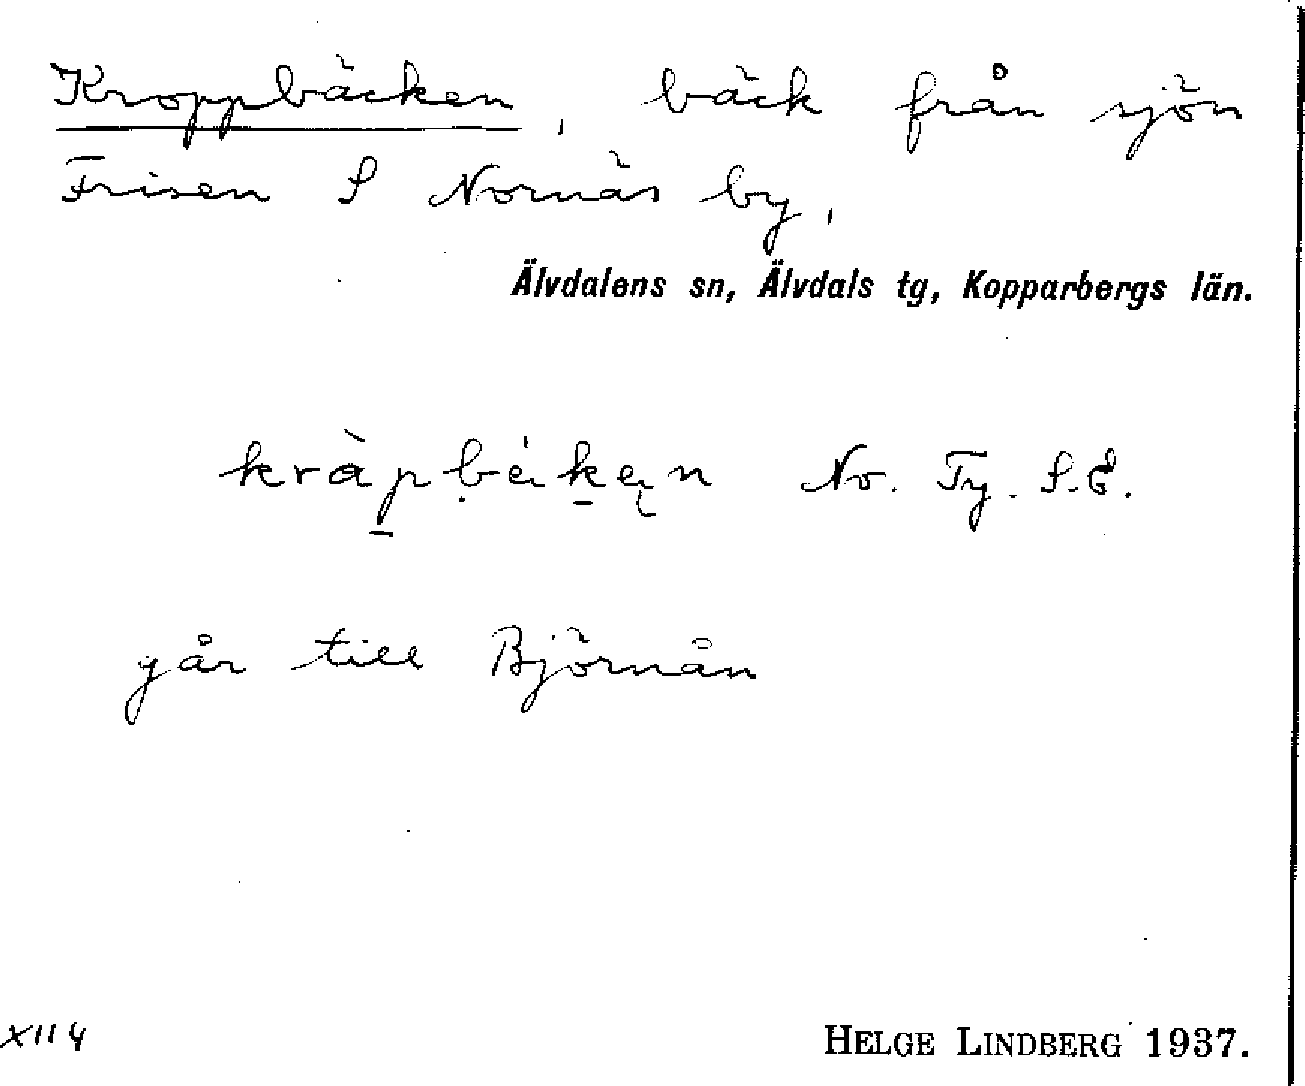 Kroppbäcken, bäck från sjön
Frisen S Nornäs by,
Älvdalens sn, Älvdals tg, Kopparbergs län.
kràpbèken No. Ty. S.E.
går till Björnån
XII 4
HELGE LINDBERG 1937.